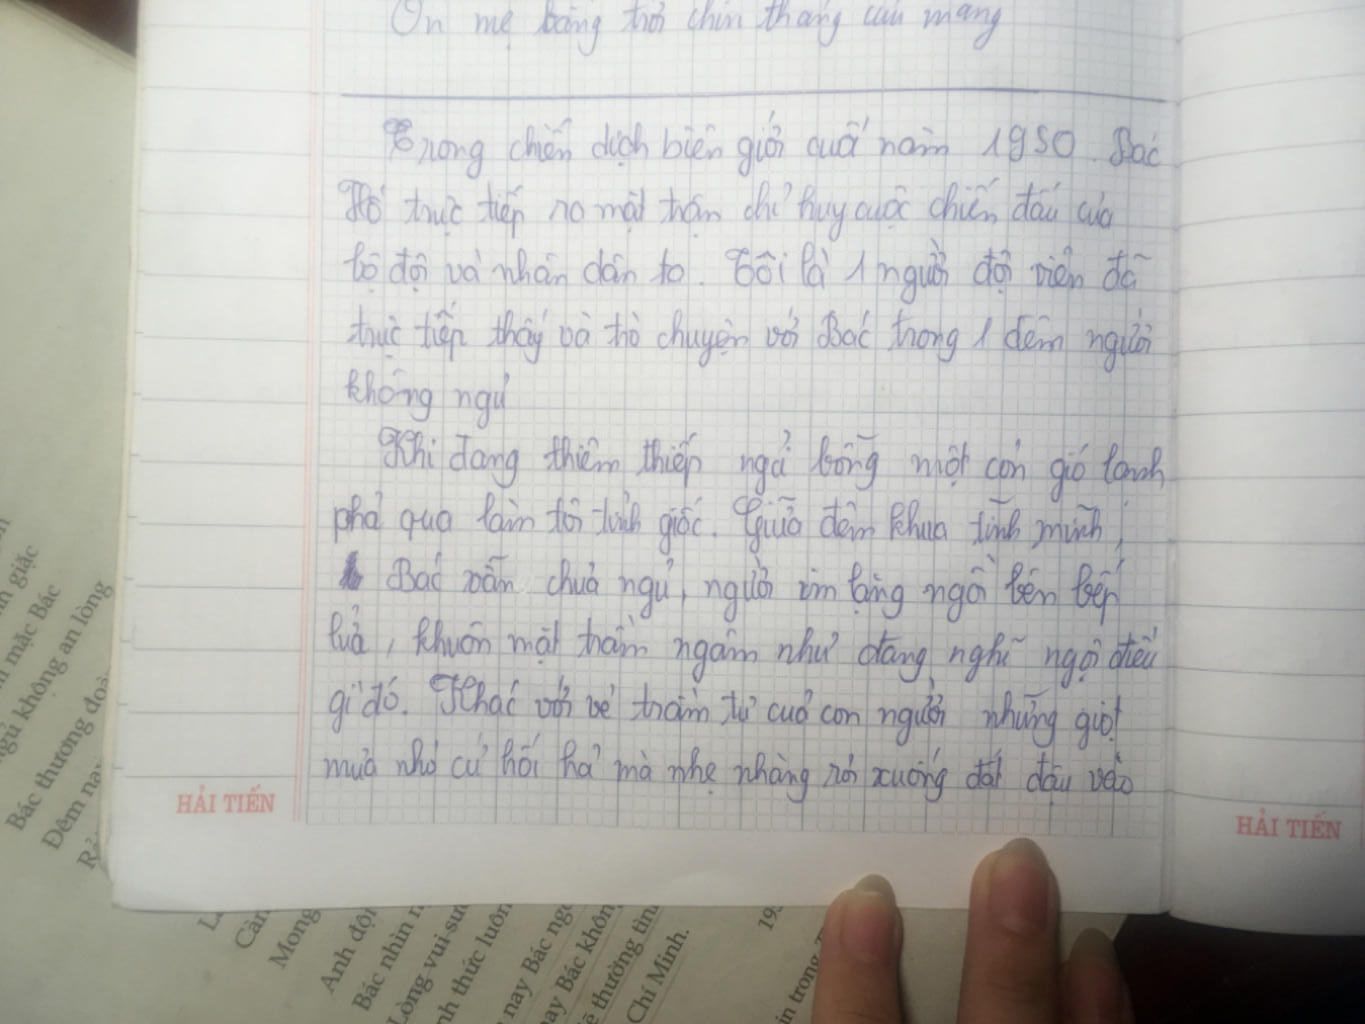 Ơn mẹ bằng trời chín tháng cưu mang
Trong chiến dịch biên giới cuối năm 1950. Bác
Hồ trực tiếp ra mặt trận chỉ huy cuộc chiến đấu của
bộ đội và nhân dân ta. Tôi là 1 người đội viên đã
trực tiếp thấy và trò chuyện với Bác trong 1 đêm người
không ngủ
Khi đang thiêm thiếp ngủ bỗng một cơn gió lạnh
phả qua làm tôi tỉnh giấc. Giữa đêm khuya tĩnh mịch,
Bác vẫn chưa ngủ, người im lặng ngồi bên bếp
lửa, khuôn mặt trầm ngâm như đang nghĩ ngợi điều
gì đó. Khác với vẻ trầm tư của con người những giọt
mưa nhỏ cứ hối hả mà nhẹ nhàng rơi xuống đất đậu vào
HẢI TIẾN
HẢI TIẾN
giặc
mặc Bác
không an lòng
Bác thương đoà
Đêm na
Mong
Anh đội
Bác nhìn
Lòng vui sướ
thức luôn
nay Bác ngồ
ay Bác không
thường tình
Chí Minh.
trong